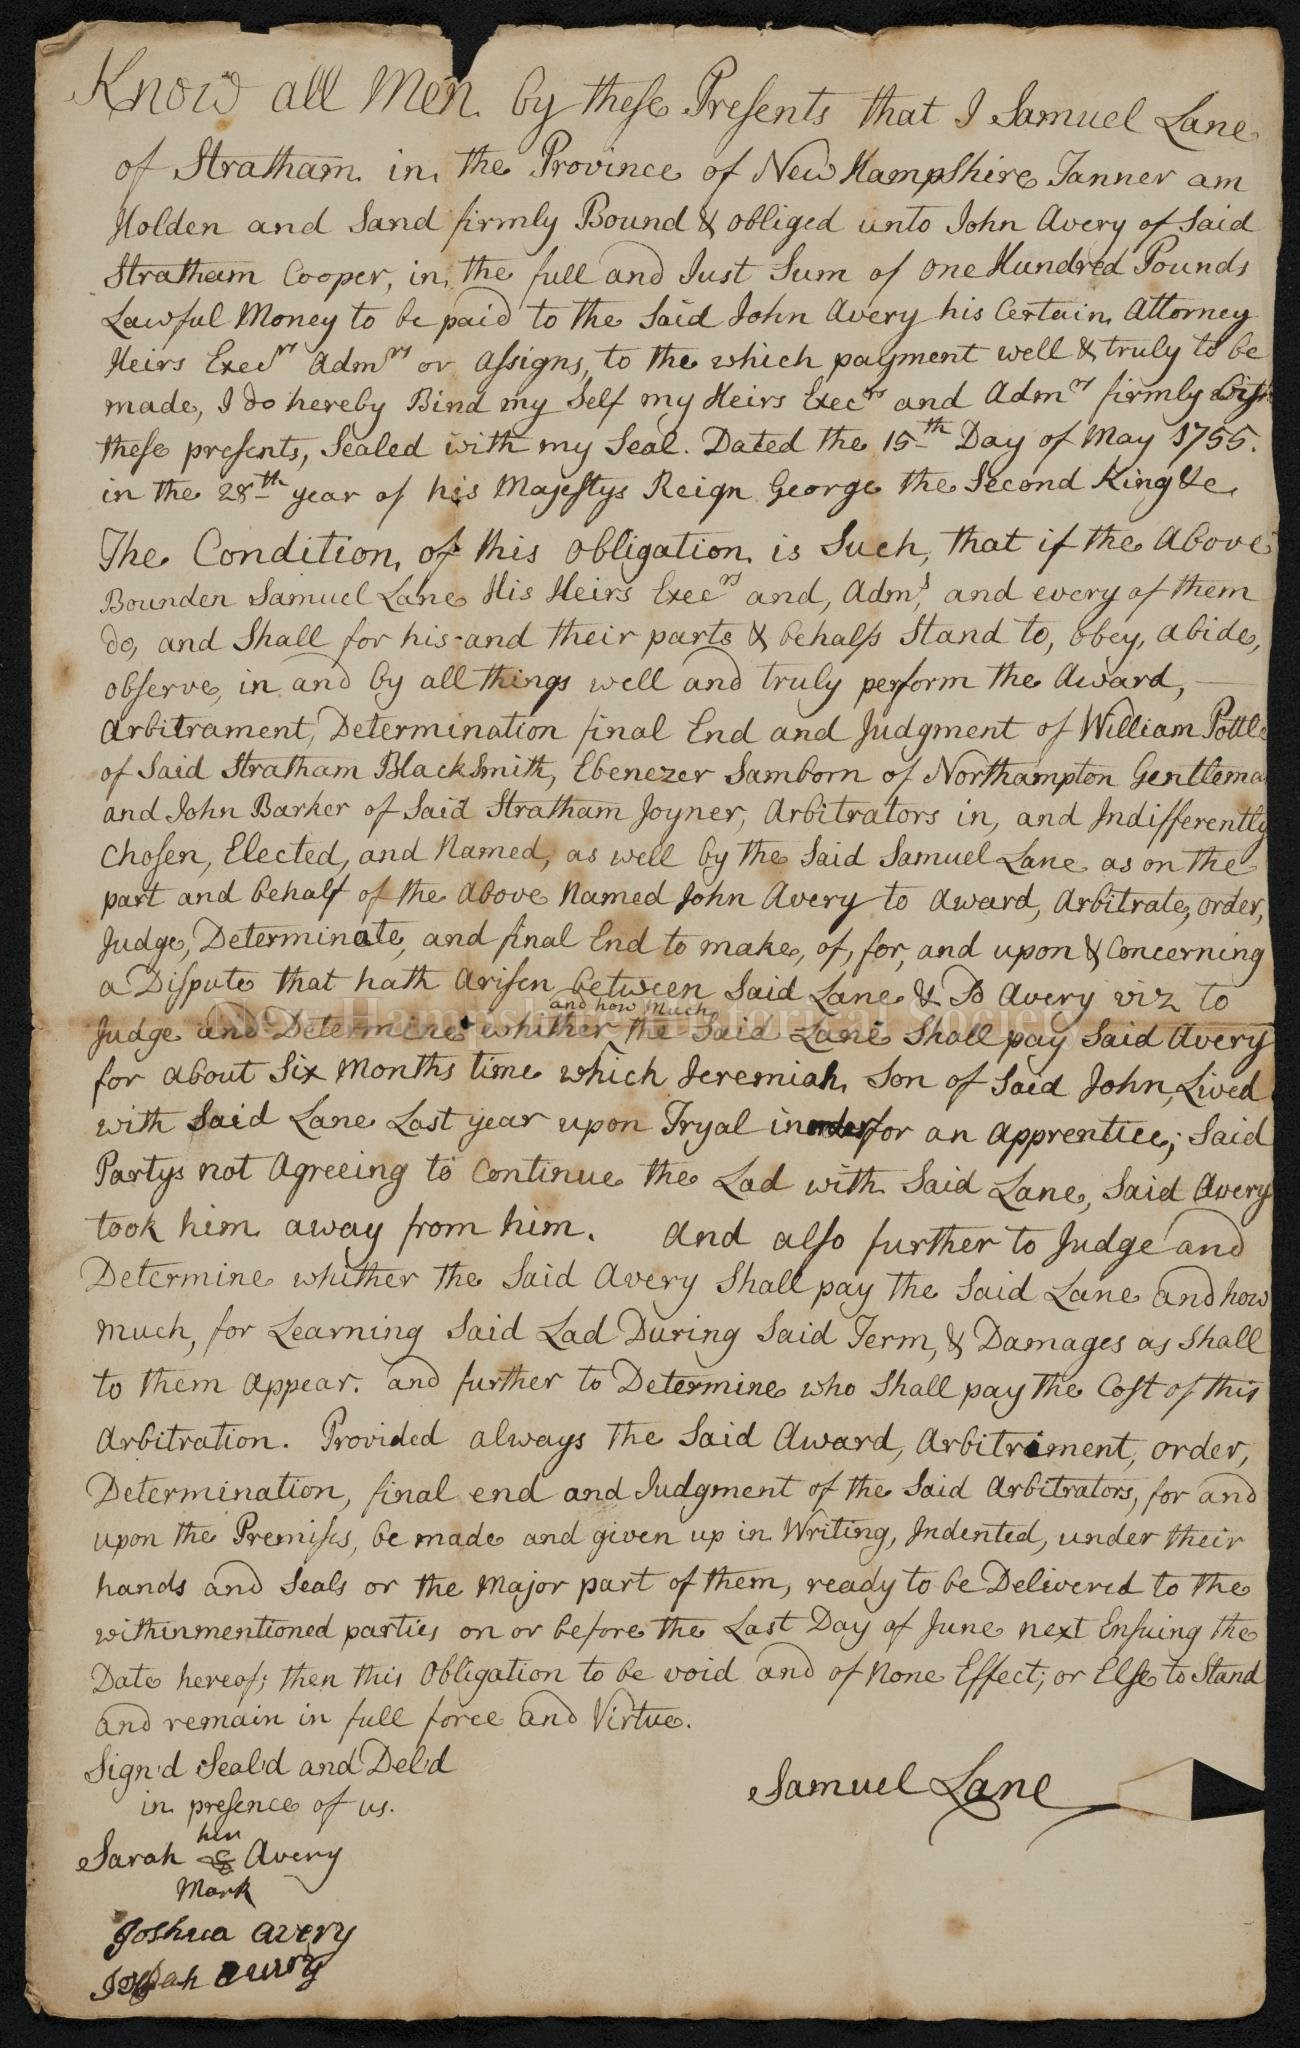 Know all Men by these Presents that I Samuel Lane
of Stratham in the Province of New Hampshire Tanner am
Holden and Sand firmly Bound & obliged unto John Avery of Said
Stratham Cooper, in the full and Just Sum of one Hundred Pounds
Lawful Money to be paid to the Said John Avery his Certain Attorney
Heirs Execrs Admrs or assigns, to the which payment well & truly to be
made, I do hereby Bind my Self my Heirs Execrs and Admrs firmly with
these presents, Sealed with my Seal. Dated the 15th Day of May 1755.
in the 28th year of his Majestys Reign George the Second King &c
The Condition of this obligation is Such, that if the Above
Bounden Samuel Lane His Heirs Execrs and, Adms, and every of them
do, and Shall for his and their parts & behalfs Stand to, obey, abide,
observe, in and by all things well and truly perform the Award,
Arbitrament, Determination final End and Judgment of William Pottle
of Said Stratham BlackSmith, Ebenezer Samborn of Northampton Gentlema
and John Barker of Said Stratham Joyner, Arbitrators in, and Indifferently
Chosen, Elected, and Named, as well by the Said Samuel Lane as on the
part and behalf of the Above Named John Avery to Award, Arbitrate, order,
Judge, Determinate, and final End to make, of, for, and upon & Concerning
a Dispute that hath Arisen between Said Lane & Sd Avery viz to
and how Much
Judge and Determine whither the Said Lane Shall pay Said Avery
for about Six Months time which Jeremiah Son of Said John, Lived
with Said Lane Last year upon Tryal in for an apprentice; Said
Partys not Agreeing to Continue the Lad with Said Lane, Said Avery
took him away from him. And also further to Judge and
Determine whither the Said Avery Shall pay the Said Lane and how
much, for Learning Said Lad During Said Term, & Damages as Shall
to them appear. and further to Determine who Shall pay the Cost of this
Arbitration. Provided always the Said Award, Arbitriment, order,
Determination, final end and Judgment of the Said Arbitrators, for and
upon the Premises, be made and given up in Writing, Indented, under their
hands and Seals or the Major part of them, ready to be Delivered to the
withinmentioned parties on or before the Last Day of June next Ensuing the
Date hereof; then this Obligation to be void and of None Effect; or Else to Stand
and remain in full force and Virtue.
Sign'd Seal'd and Del'd
in presence of us.
Samuel Lane
her
Sarah Avery
Mark
Joshua Avery
Josiah Avery
New Hampshire Historical Society